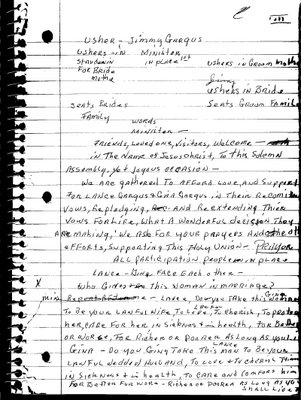 Usher - Jimmy Gaegus
Ushers in Minister
Standein in place 1st Ushers in Groom Mother
For Bride
Mother Jimmy
Ushers in Bride
Seats Brides Seats Groom Family
Family
Words
Minister -
Friends, Loved ones, Visitors, Welcome -
in The Name of Jesus Christ, To This Solemn
Assembly, yet Joyous occasion -
We are gathered To afford Love, and Support
For Lance Gaegus & Gina Gaegus, in Their Recommital
Vows, Repledging, and Reextending Their
Vows For Life, What A Wonderful decision They
are making, We ask For your prayers and
efforts, Supporting This Holy Union - Prayer
All participation people in place
Lance - Gina Face Each other -
X Who Gives This Woman in Marriage?
Gina
Min. Lance, Do you Take this Woman
To Be your Lawful Wife To Love, To Cherish, To protect
her, care For her in Sickness + in health, For Better
or worse, For Richer or poorer As Long As you Live
Lance
Gina - Do you Gina Take This Man To Be your
Lawful Wedded Husband, To Love + To cherish Him
in Sickness + in health, To care and Comfort him
For Better For worse - Richer or poorer as Long as you
Shall Live?